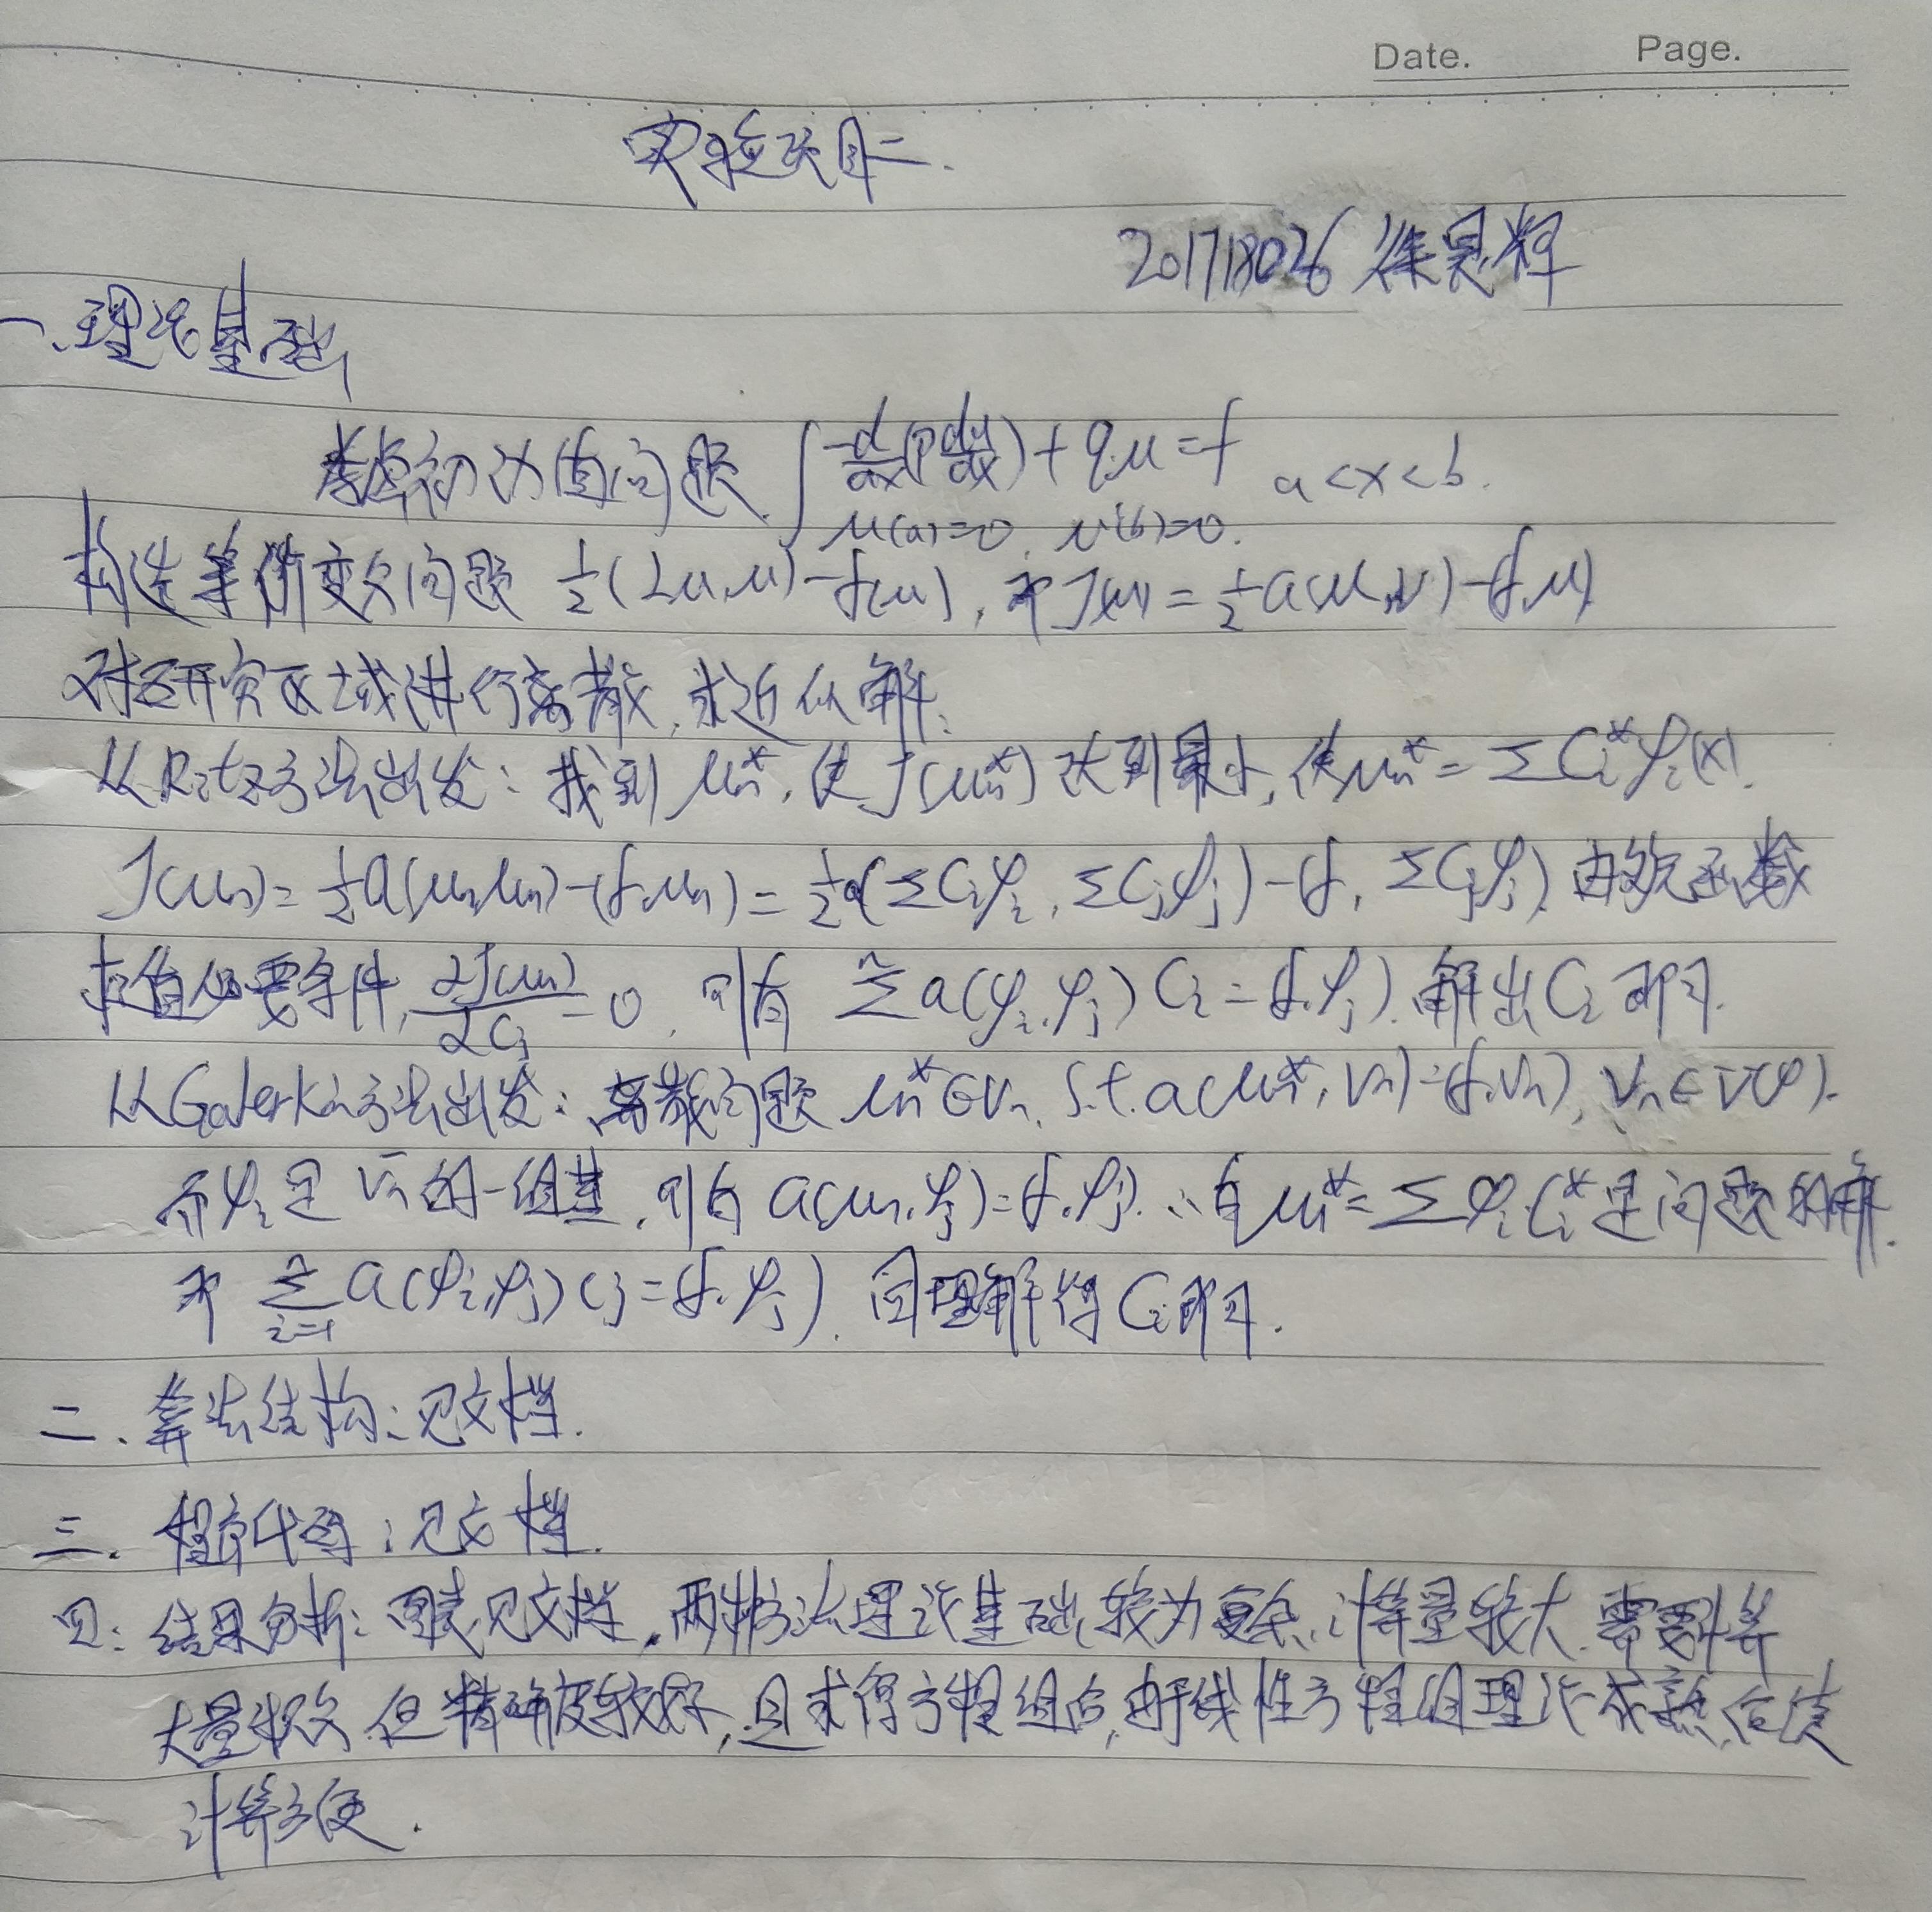 Date. Page.
实验项目二.
201718026 徐晃辉
一、理论基础
考虑初边值问题. { -d/dx(p du/dx) + qu = f a<x<b.
u(a)=0, u'(b)=0.
构造等价变分问题 1/2(Lu,u)-f(u), 即J(u)=1/2a(u,u)-(f,u)
对研究区域进行离散, 求近似解.
从Ritz方法出发: 找到 un*, 使J(un*)达到最小, 使un*=ΣCi*φi(x).
J(un)=1/2a(un,un)-(f,un)=1/2a(ΣCiφi, ΣCjφj)-(f, ΣCjφj) 由多元函数
极值必要条件, ∂J(un)/∂Cj=0, 则有 Σa(φi,φj)Ci=(f,φj). 解出Ci即可.
从Galerkin方法出发: 离散问题 un*∈Vn, s.t. a(un*,Vn)=(f,Vn), Vn∈V(φ).
而φi是Vn的一组基, 则有 a(un,φj)=(f,φj). ∴有un*=ΣφiCi*是问题的解.
即 Σi=1n a(φi,φj)Cj=(f,φj). 同理解得Ci即可.
二、算法结构: 见文档.
三. 程序代码: 见文档.
四: 结果分析: 图表见文档, 两种方法理论基础较为复杂, 计算量较大. 需要计算
大量积分 但精确度较好, 且求得方程组后, 由于线性方程组理论成熟, 后续
计算方便.